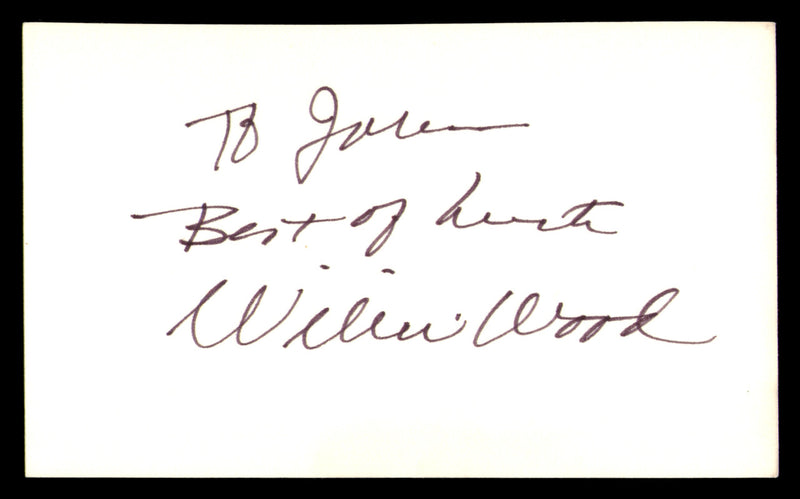 To John
Best of Luck
Wilbur Wood